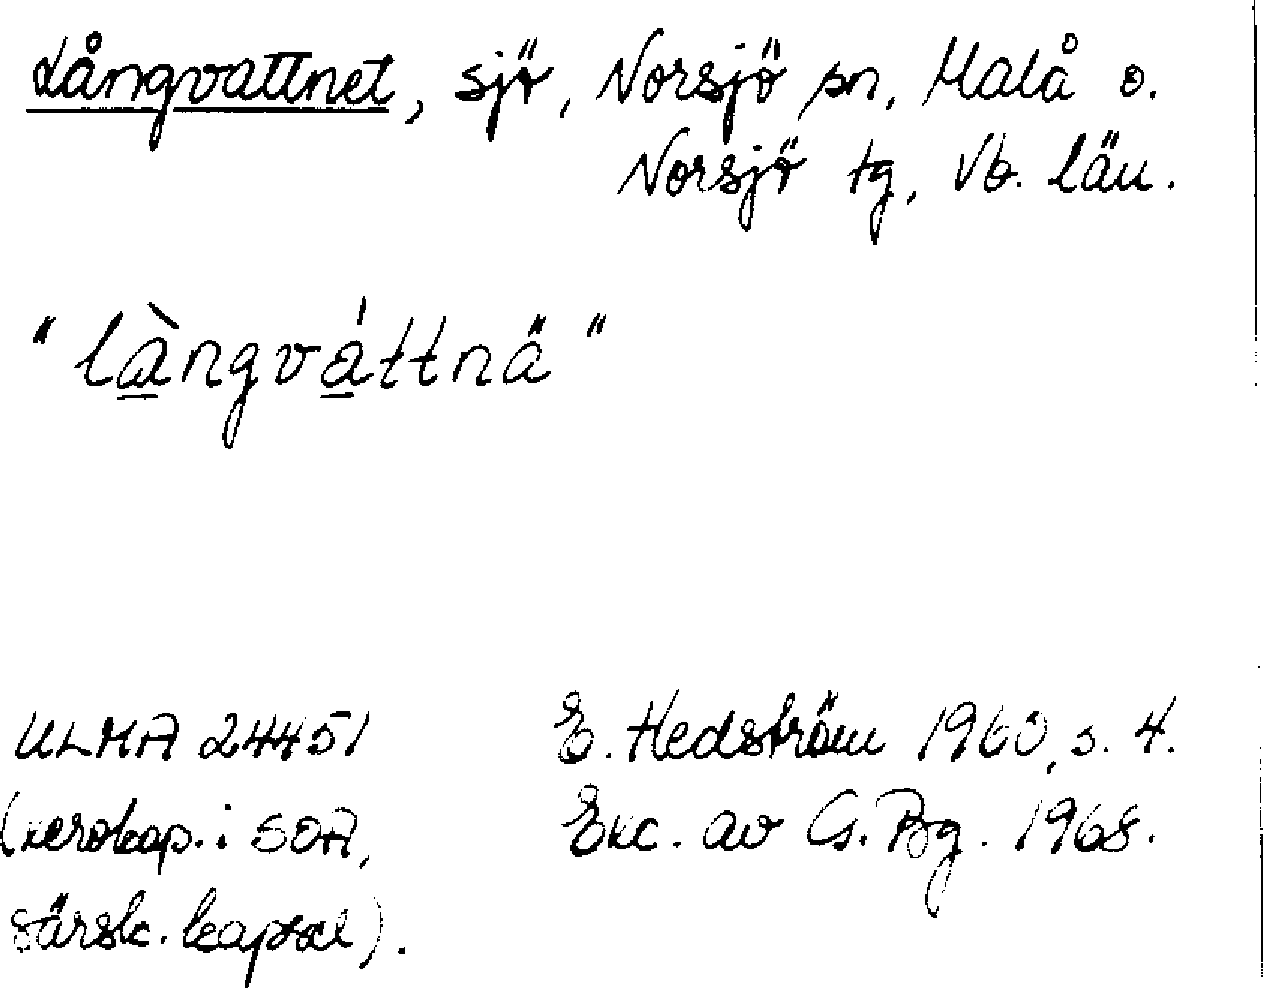 Långvattnet, sjö, Norsjö sn, Malå o.
Norsjö tg, Vb. län.
"là̲ngvá̲ttnä"
ULMA 24451 E. Hedström 1960, s. 4.
(xerokop. i SOA, Exc. av G. Bg. 1968.
särsk. kapsel).